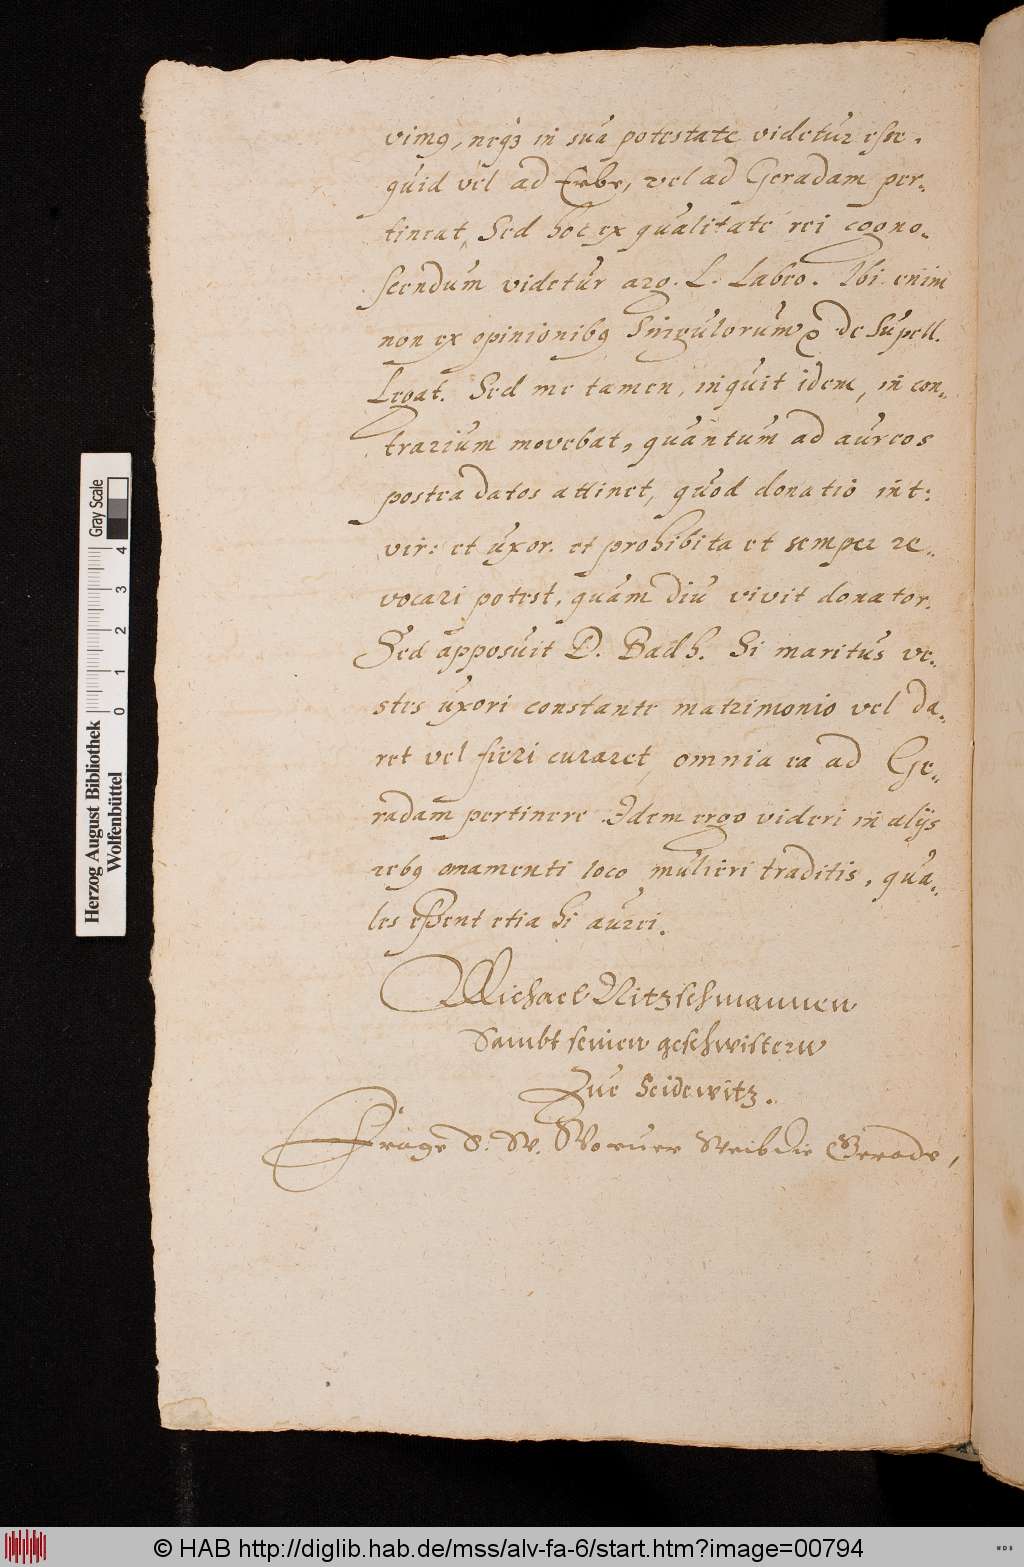 vimꝯ, neqꝫ in sua potestate videtur esse.
quid vel ad Erbe, vel ad Geradam per-
tineat, Sed hoc ex qualitate rei cogno-
scendum videtur arg. L. Labeo. Ibi enim
non ex opinionibꝯ Singulorum de Supell.
Legat. Sed me tamen, inquit idem, in con-
trarium movebat, quantum ad aureos
postea datos attinet, quod donatio int:
vir: et uxor. et prohibita et semper re-
vocari potest, quam diu vivit donator.
Sed apposuit D. Badh. Si maritus ve-
stes uxori constante matrimonio vel da-
ret vel fieri curaret, omnia ea ad Ge-
radam pertinere. Idem ergo videri in alijs
rebꝯ ornamenti loco mulieri traditis, qua-
les essent etia hi aurei.
Michael Nitzschmannen
Sambt seinen geschwistern
Zue Seidewitz.
Frage die Gerade,
Herzog August Bibliothek
Wolfenbüttel
0 1 2 3 4
Gray Scale
© HAB http://diglib.hab.de/mss/alv-fa-6/start.htm?image=00794